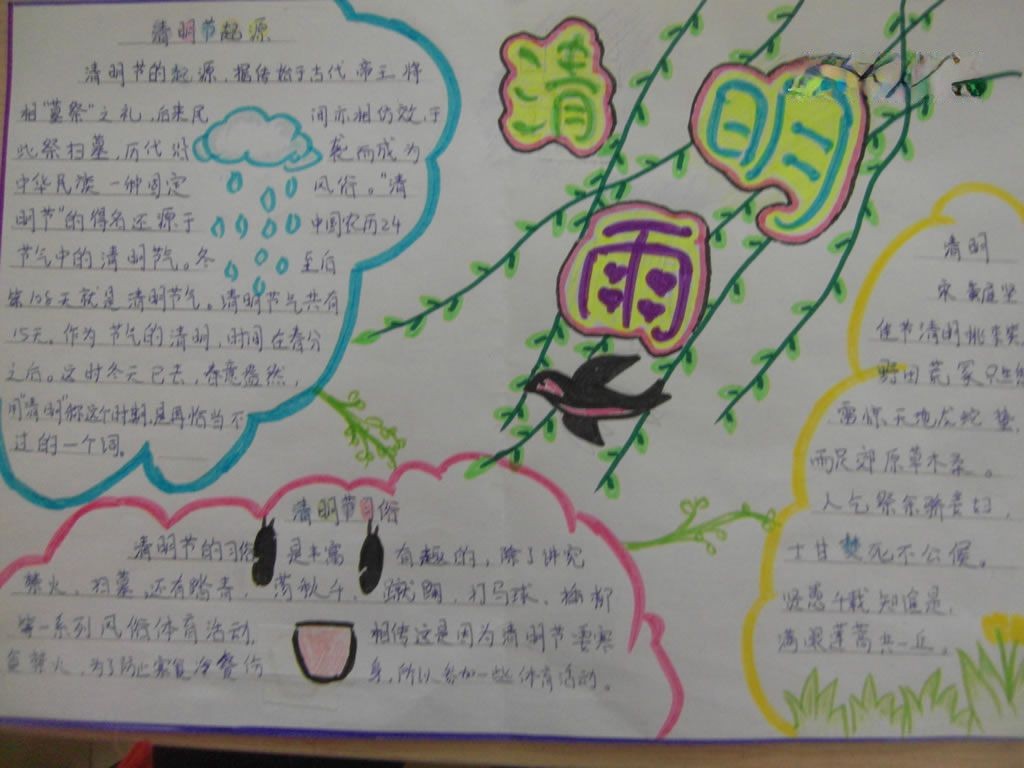 清明节起源
清明节的起源，据传始于古代帝王将
相"墓祭"之礼，后来民间亦相仿效，于
此祭扫墓，历代沿袭而成为
中华民族一种固定风俗。"清
明节"的得名还源于中国农历24
节气中的清明节气。冬至后
第105天就是清明节气。清明节气共有
15天。作为节气的清明，时间在春分
之后。这时冬天已去，春意盎然，
用"清明"称这个时期，是再恰当不
过的一个词。
清
明
雨
清明节习俗
清明节的习俗是丰富有趣的，除了讲究
禁火、扫墓，还有踏青、荡秋千、蹴鞠、打马球、插柳
等一系列风俗体育活动。相传这是因为清明节要寒
食禁火，为了防止寒食冷餐伤身，所以参加一些体育活动。
清明
宋 黄庭坚
佳节清明桃李笑，
野田荒冢只
雷惊天地龙蛇蛰，
雨足郊原草木柔。
人乞祭余骄妾妇，
士甘焚死不公侯。
贤愚千载知谁是，
满眼蓬蒿共一丘。